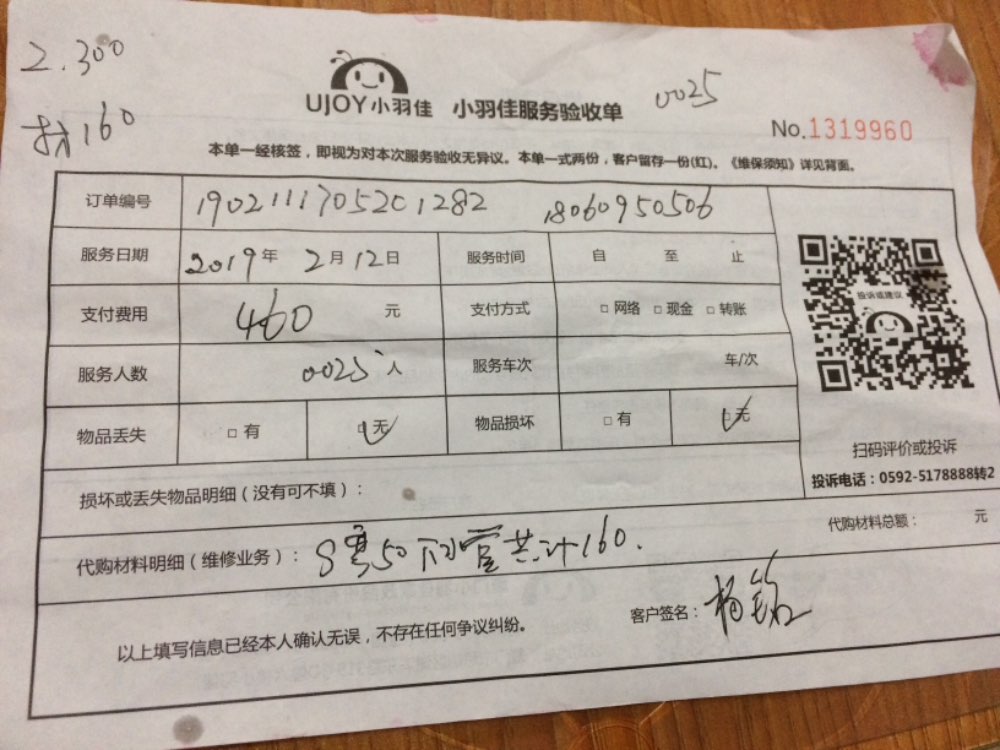 2.300
材160
UJOY小羽佳 小羽佳服务验收单 0025
No.1319960
本单一经核签，即视为对本次服务验收无异议。本单一式两份，客户留存一份(红)。《维保须知》详见背面。
订单编号 1902111705201282 18060950506
服务日期 2019年 2月12日 服务时间 自 至 止
支付费用 460 元 支付方式 □网络 □现金 □转账
服务人数 0025 人 服务车次 车/次
物品丢失 □有 □无 物品损坏 □有 □无
投诉或建议
扫码评价或投诉
投诉电话：0592-5178888转2
损坏或丢失物品明细（没有可不填）：
代购材料明细（维修业务）：S弯50 管共计160.
代购材料总额： 元
以上填写信息已经本人确认无误，不存在任何争议纠纷。
客户签名：杨